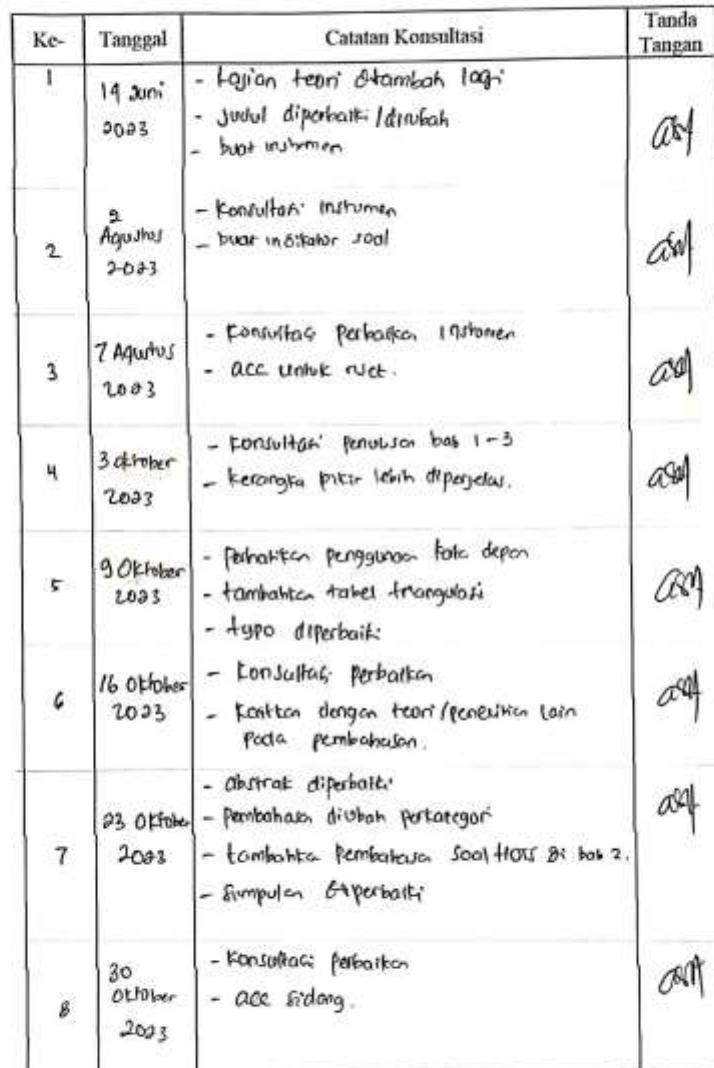 Ke- Tanggal Catatan Konsultasi Tanda Tangan
1 14 Juni 2023
- Kajian teori ditambah lagi
- Judul diperbaiki/dirubah
- buat instrumen
2 2 Agustus 2023
- Konsultasi instrumen
- buat indikator soal
3 7 Agustus 2023
- Konsultasi perbaikan instrumen
- acc untuk riset.
4 3 Oktober 2023
- Konsultasi penulisan bab 1-3
- kerangka pikir lebih diperjelas.
5 9 Oktober 2023
- Perhatikan penggunaan kata depan
- tambahkan tabel triangulasi
- typo diperbaiki
6 16 Oktober 2023
- Konsultasi perbaikan
- Kaitkan dengan teori/penelitian lain
pada pembahasan.
7 23 Oktober 2023
- abstrak diperbaiki
- Pembahasan diubah perkategori
- tambahkan pembahasan soal HOTS di bab 2.
- Simpulan diperbaiki
8 30 Oktober 2023
- Konsultasi perbaikan
- acc sidang.